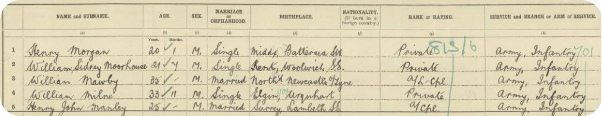 NAME AND SURNAME. AGE. SEX. MARRIAGE OR ORPHANHOOD. BIRTHPLACE. NATIONALITY. (If born in a foreign country) RANK OR RATING. SERVICE AND BRANCH OR ARM OF SERVICE.
Years. Months.
1 Henry Morgan 20 1 M. Single Middx, Battersea Private 813/6 Army, Infantry 701
2 William Sidney Moorhouse 21 4 M. Single Kent, Woolwich, S.E. Private Army, Infantry
3 William Mawby 35 - M. Married North'd Newcastle o/Tyne A/L-Cpl. Army, Infantry
4 William Milne 33 11 M. Single Elgin, Urquhart Private Army, Infantry
5 Henry John Manley 25 - M. Married Surrey, Lambeth S.E. A/Cpl. Army, Infantry